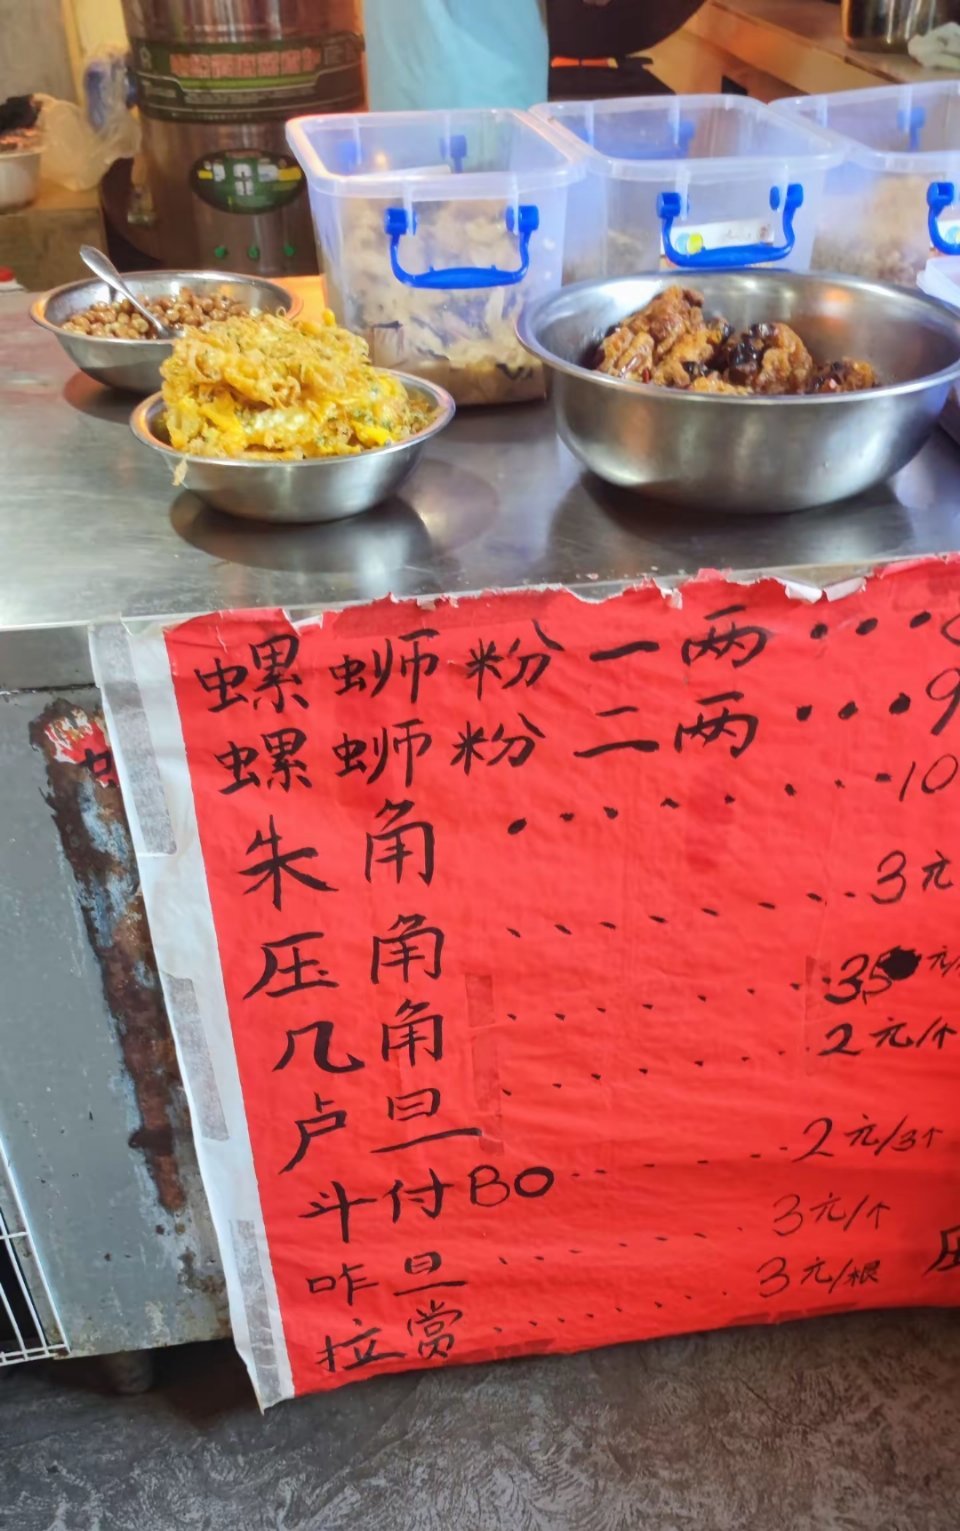 螺蛳粉一两・・・
螺蛳粉二两・・・9
朱角・・・・・・・・10
压角・・・・・・・・3元
几角・・・・・・・・35元/
卢旦・・・・・・・・2元/个
斗付BO・・・・・・2元/3个
咋旦・・・・・・・・3元/个
拉赏・・・・・・・・3元/根